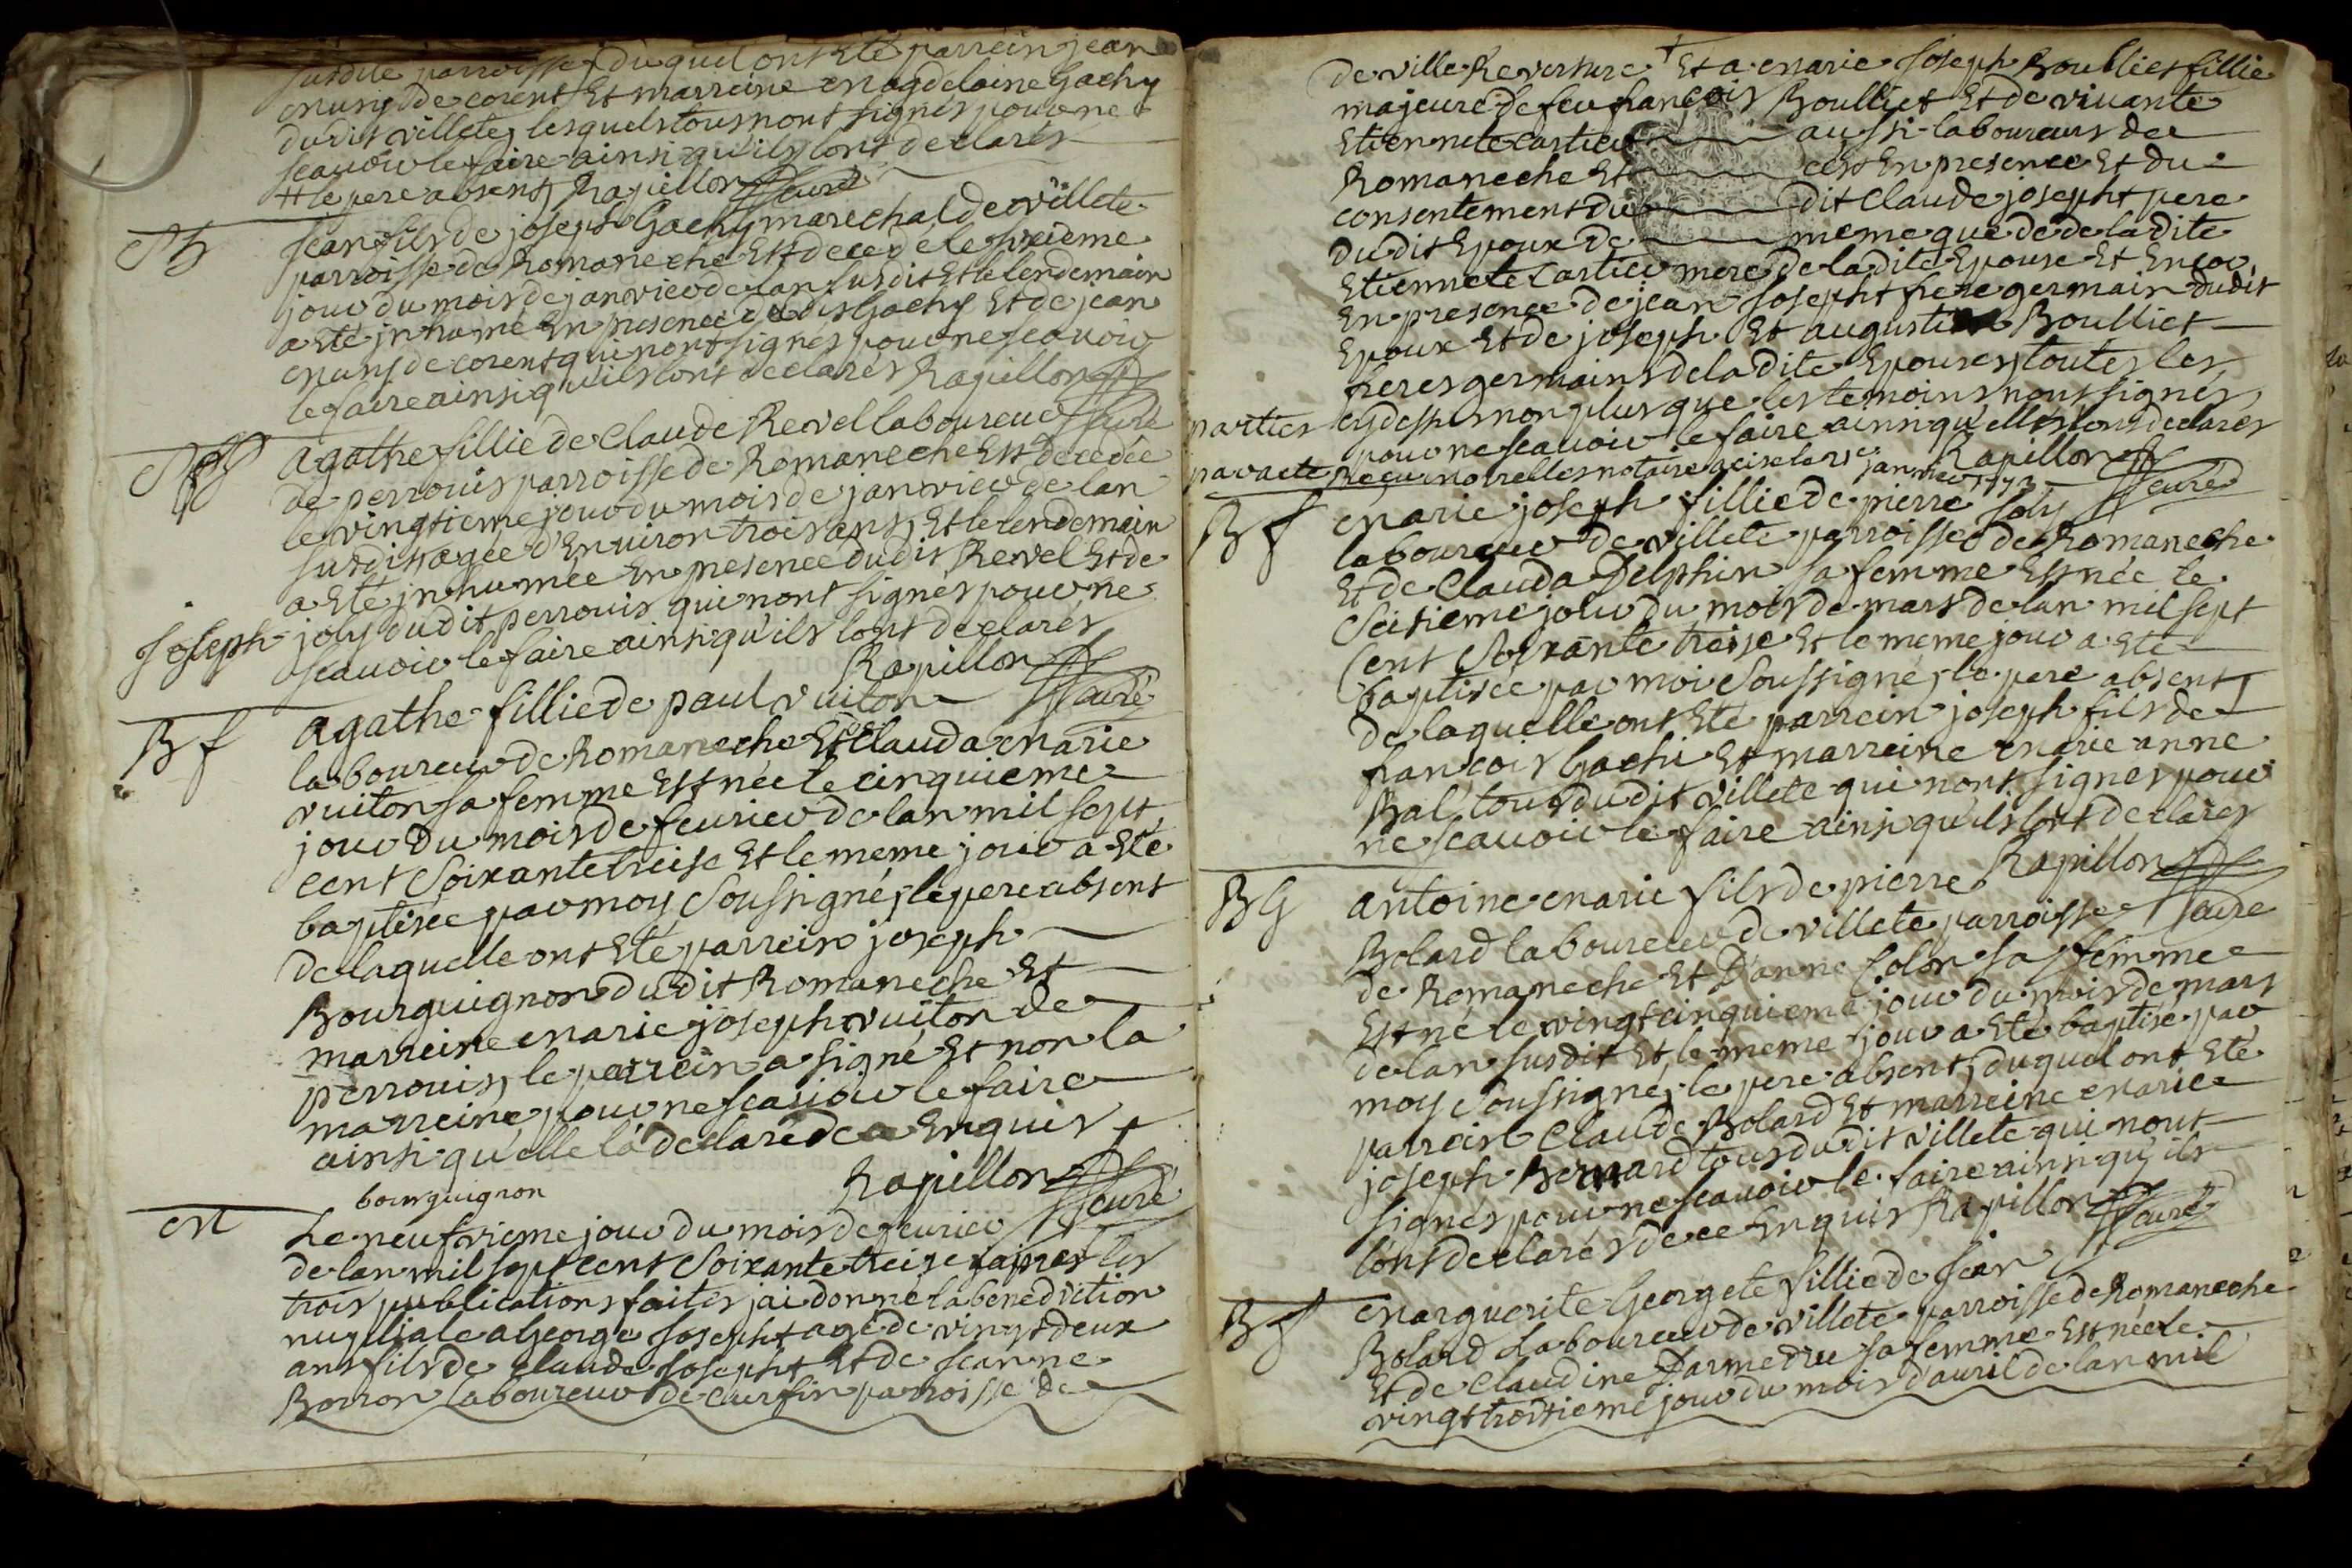 susdite parroisse, duquel ont Eté parrein jean
muny de corent Et marreine magdelaine Gachy
dudit villete, lesquels tous n'ont signés pour ne
scavoir le faire ainsi qu'ils l'ont declarés
# le pere absent, Rapillon curé
Sb
Jean fils de joseph Gachy marechal de villete
parroisse de Romaneche Est decedé le sixieme
jour du mois de janvier de lan susdit Et le lendemain
a Eté jnhumé En presence dudit Gachy Et de jean
muny de corent qui n'ont signés pour ne scavoir
le faire ainsi qu'ils l'ont declarés Rapillon
curé
Agathe fillie de Claude Revel laboureur
de perrouis parroisse de Romaneche Est decedée
le vingtieme jour du mois de janvier de lan
susdit agée d'Environ trois ans, Et le lendemain
a Eté jnhumée En presence dudit Revel Et de
joseph joly dudit perrouis qui n'ont signés pour ne
scavoir le faire ainsi qu'ils l'ont declarés
Rapillon
curé
Bf
Agathe fillie de paul vuiton
laboureur de Romaneche Et Clauda marie
vuiton sa femme Est née le cinquieme
jour du mois de feurier de lan mil sept
cent Soixante treise Et le meme jour a Eté
baptisée par moy Soussigné, le pere absent
de laquelle ont Eté parrein joseph
Bourguignon dudit Romaneche Et
marreine marie joseph vuiton de
perrouis, le parrein a signé Et non la
marreine pour ne scavoir le faire
ainsi qu'elle l'a declaré de ce Enquis
Rapillon
bourguignon
curé
M
Le neufvieme jour du mois de feurier
de lan mil sept cent Soixante treise apres les
trois publications faites jai donné la benediction
nuptiale a George Josepht agé de vingt deux
ans fils de Claude Josepht Et de Jeanne
Borron laboureur de Curfin parroisse de
de ville Reversure + Et a marie Joseph Boulliet fillie
majeure de feu françois Boulliet Et de viuante
Etiennete Cartier aussi laboureurs de
Romaneche Et cest En presence Et du
consentement du dit Claude josepht pere
dudit Epoux de meme que de de ladite
Etiennete Cartier mere de ladite Epouse Et Encor
En presence de jean Josepht frere germain dudit
Epoux Et de joseph Et augustin Boulliet
freres germains de la dite Epouse, toutes les
parties cy dessus non plus que les temoins n'ont signés
pour ne scavoir le faire ainsi qu'elles l'ont declarés
par acte Reçu notaire janvier 1773
Rapillon
curé
Bf
Marie joseph fillie de pierre Joly
laboureur de villete parroisse de Romaneche
Et de Clauda Delphin sa femme Est née le
Seisieme jour du mois de mars de lan mil sept
Cent Soixante treise Et le meme jour a Eté
baptisée par moi Soussigné, le pere absent,
de laquelle ont Eté parrein joseph fils de
francois Gachi Et marreine marie anne
Bal, tous dudit villete qui n'ont signes pour
ne scavoir le faire ainsi qu'ils l'ont declarés
Rapillon
curé
BG
Antoine marie fils de pierre
Bolard laboureur de villete parroisse
de Romaneche Et D'anne Colon sa femme
Est né le vingt cinquieme jour du mois de mars
de lan susdit Et le meme jour a Eté baptisé par
moy Soussigné, le pere absent, duquel ont Eté
parrein Claude Bolard Et marreine marie
joseph Bernard tous dudit villete qui n'ont
signés pour ne scavoir le faire ainsi qu'ils
l'ont declarés de ce Enquis Rapillon
curé
Bf
Marguerite Georgete fillie de Jean
Bolard Laboureur de villete parroisse de Romaneche
Et de Claudine Darmedru sa femme Est née le
vingt troisieme jour du mois d'auril de lan mil